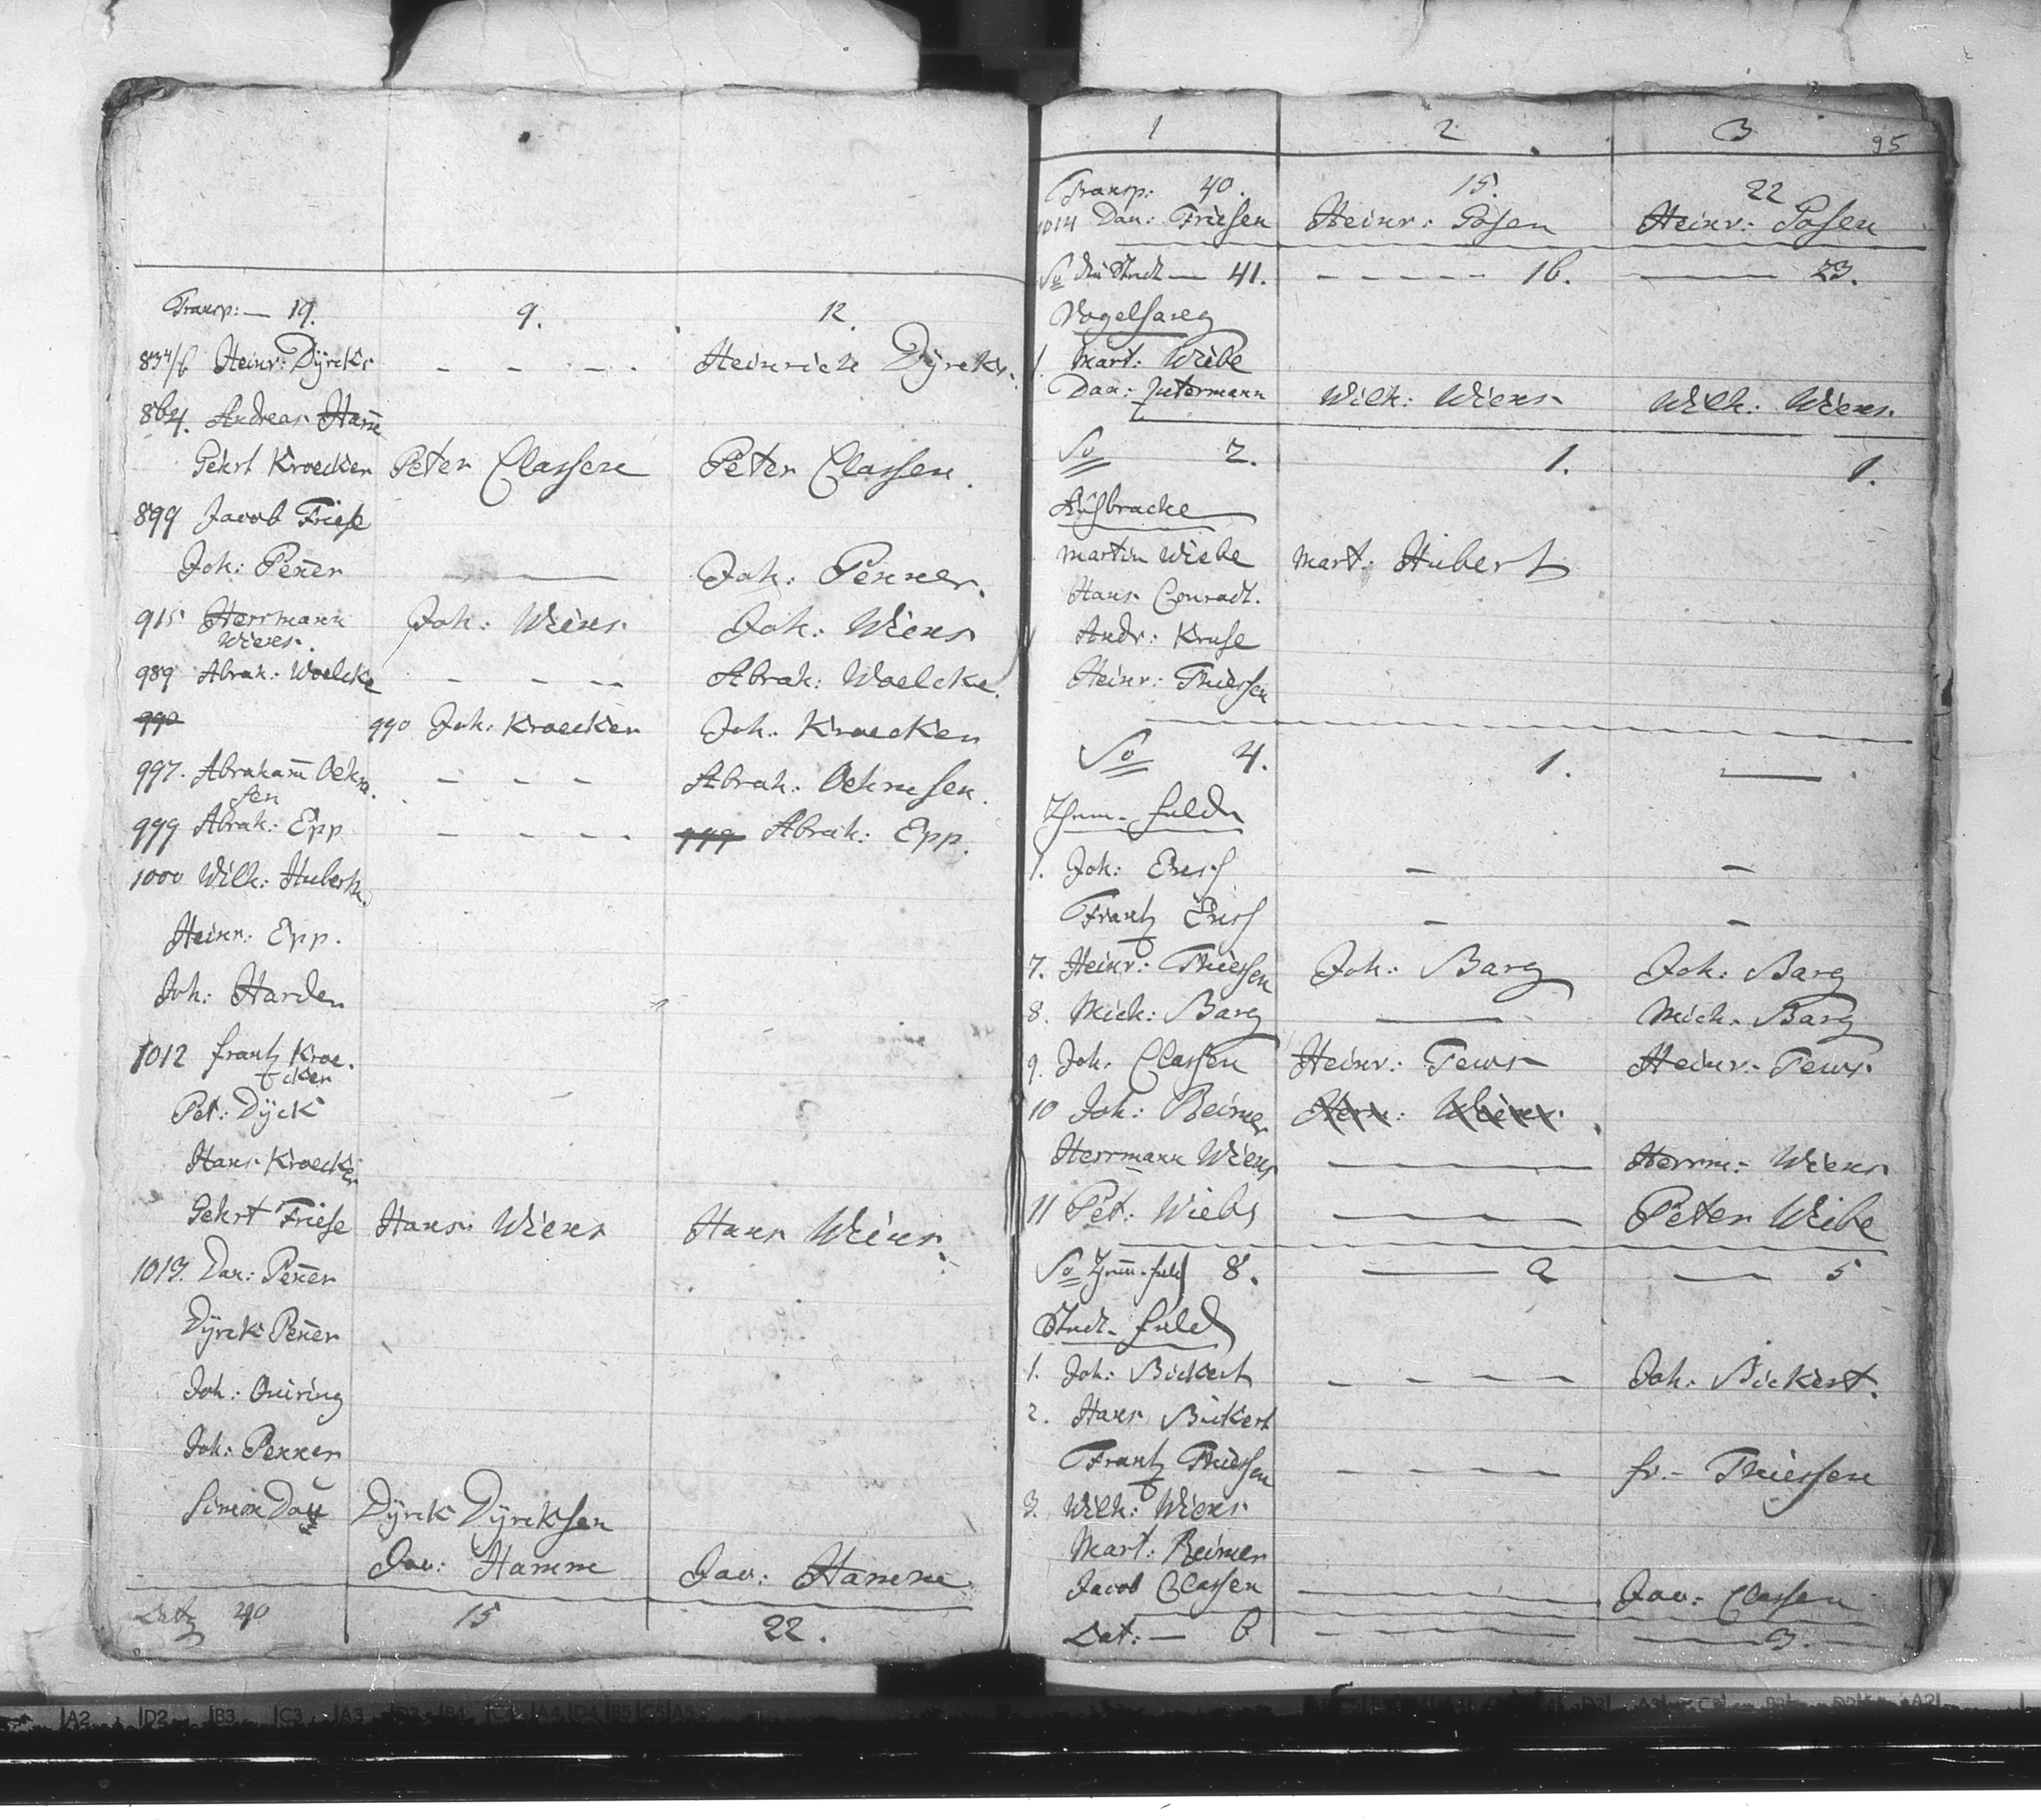 Transp: — 19. 9. 12.
834/6 Heinr: Dÿrcks - - - - Heinrich Dÿrcks.
864. Andreas Ham̄
Gehrt Kroecker Peter Classen Peter Classen.
899 Jacob Friese
Joh: Pen̄er — Joh: Penner.
915 Herrmann Joh: Wiens Joh: Wiens
Wiens.
989 Abrah: Woelcke - - - - Abrah: Woelcke.
990 990 Joh: Kroecker Joh: Kroecker
997. Abraham̄ Oehm - - - Abrah: Oehmsen.
sen
999 Abrah: Epp - - - - 999 Abrah: Epp.
1000 Wilh: Hubert
Heinr: Epp.
Joh: Harder
1012 Frantz Kroe.
cker
Pet: Dÿck
Hans Kroecker
Gehrt Friese Hans Wiens Hans Wiens.
1013. Dan: Pen̄er
Dÿrck Pen̄er
Joh: Quiring
Joh: Penner
Simon Dau Dÿrck Dÿrcksen
Jac: Hamm Jac: Hamm
Lat 40 15 22.
1 2 3
95
Transp: 40. 15. 22
1014 Dan: Friesen Heinr: Posen Heinr: Posen
Sa 41. - - - - - 16. — 23.
Vogelsang
1. Mart: Wiebe
Dan: Wilh: Wiens Wilh: Wiens.
Sa 2. 1. 1.
Martin Wiebe Mart: Hubert
Hans Conradt.
Andr: Kruse
Heinr: Thiessen
Sa 4. 1. —
1. Joh: Ensz — —
Frantz Ensz — —
7. Heinr: Thiessen Joh: Barg Joh: Barg
8. Mich: Barg — Mich: Barg
9. Joh: Classen Heinr: Tews Heinr: Tews.
10 Joh: Reimer Herm: Wiens.
Herrmann Wiens — Herrm: Wiens
11 Pet: Wiebe — Peter Wiebe
Sa 8. — 2 — 5
1. Joh: Bickert - - - - Joh: Bickert.
2. Hans Bickert
Frantz Thiessen - - - - Fr: Thiessen
3. Wilh: Wiens
Mart: Reimer
Jacob Classen — Jac: Classen
Lat: — 6 — 3.